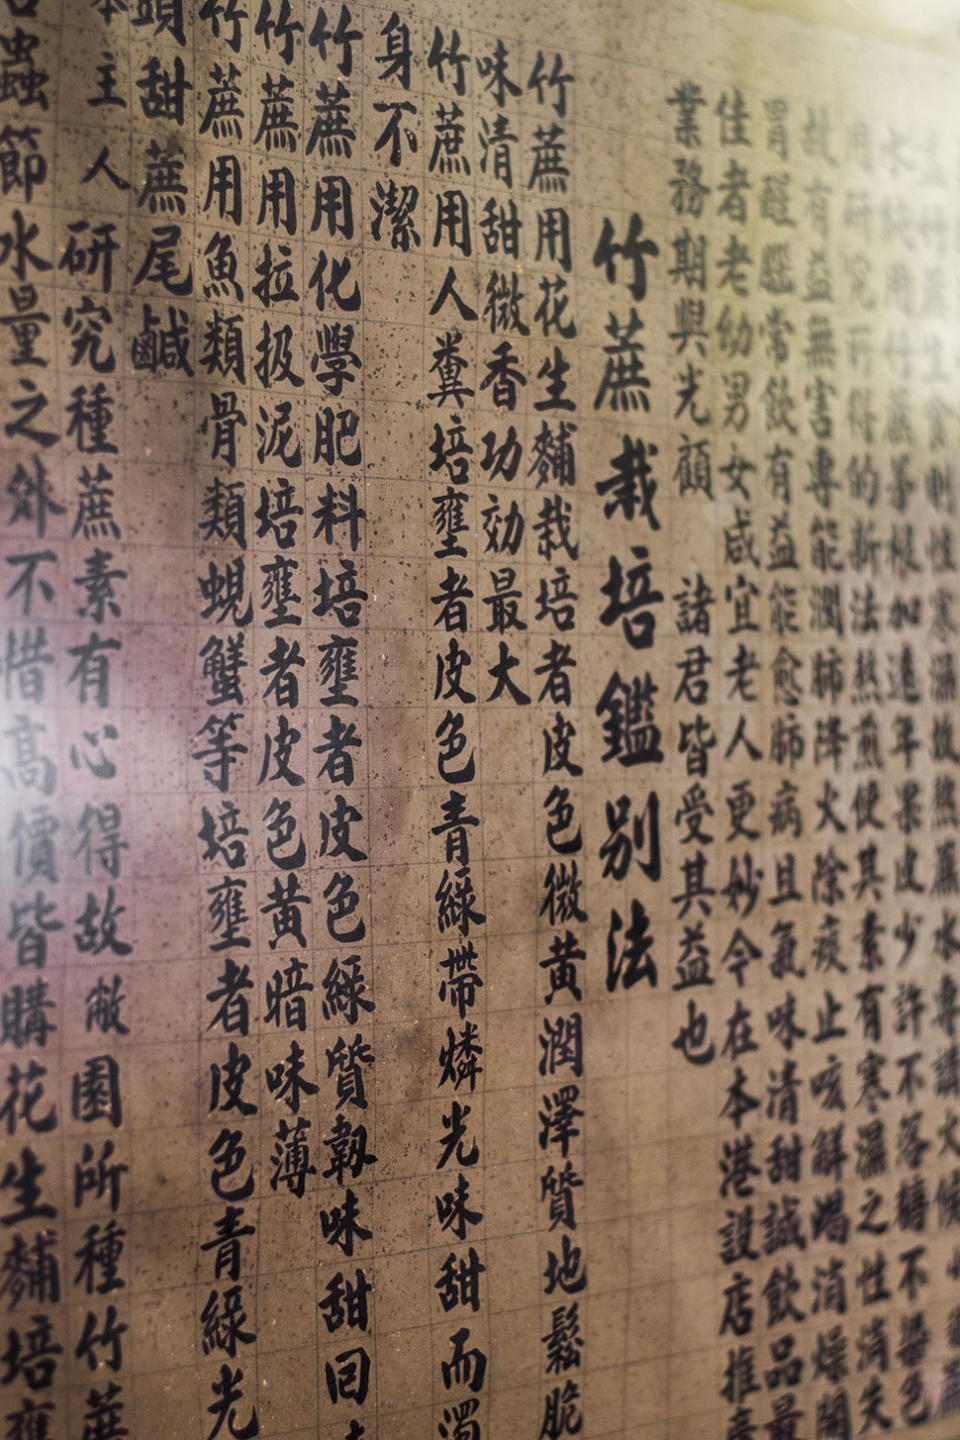 竹蔗生食則性寒濕故熬蔗水專講火候
水純用竹蔗茅根加遠年果皮少許不落糖不染色
用研究所得的新法熬煎使其素有寒濕之性消失
故有益無害專能潤肺降火除痰止咳解渴消燥開
胃醒腦常飲有益能愈肺病且氣味清甜誠飲品最
佳者老幼男女咸宜老人更妙今在本港設店推廣
業務期與光顧 諸君皆受其益也
竹蔗栽培鑑別法
竹蔗用花生麩栽培者皮色微黄潤澤質地鬆脆
味清甜微香功効最大
竹蔗用人糞培壅者皮色青綠帶燐光味甜而濁
身不潔
竹蔗用化學肥料培壅者皮色綠質韌味甜回
竹蔗用拉扱泥培壅者皮色黄暗味薄
竹蔗用魚類骨類蜆蟹等培壅者皮色青綠光
頭甜蔗尾鹹
本主人研究種蔗素有心得故敝園所種竹蔗
蟲節水量之外不惜高價皆購花生麩培壅